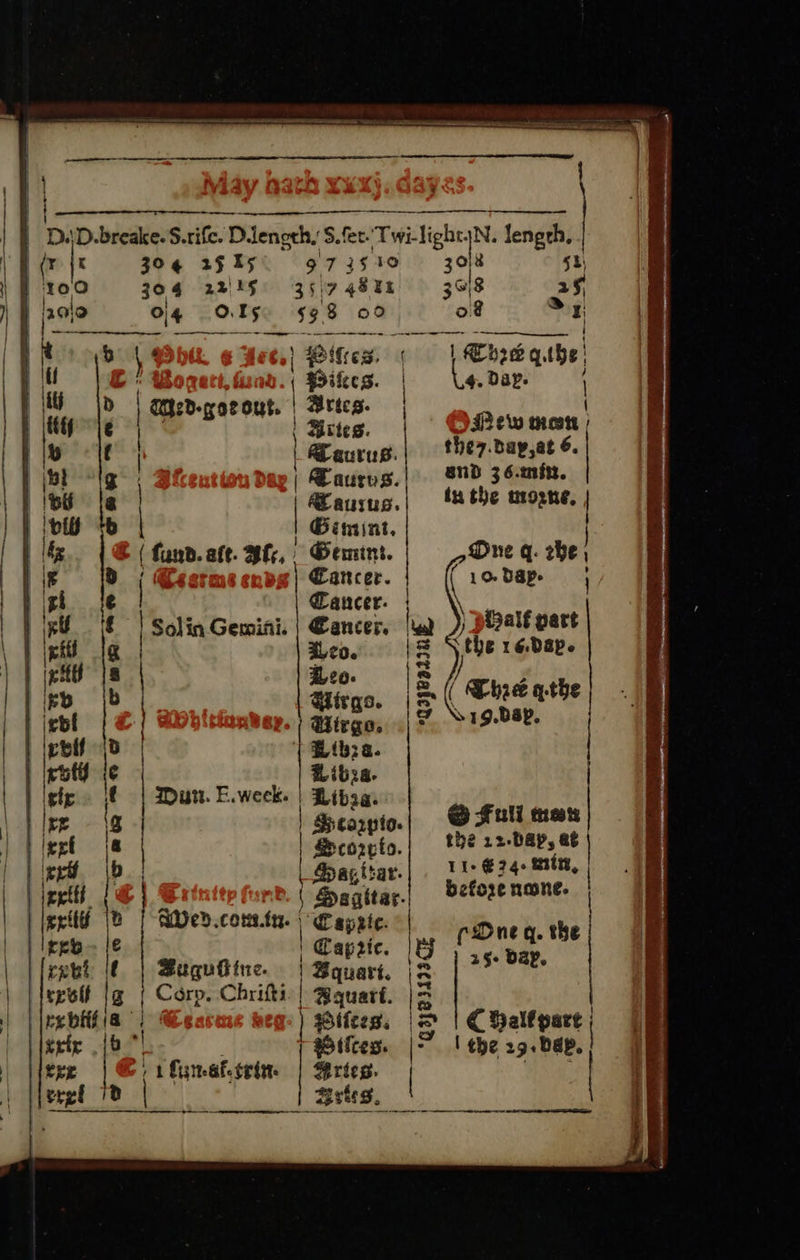 May hath xxxj. dayes.
D. D.breake. S.rise. D.length. S.set. Twi-light. N. length.
30 4 25 15 9 7 35 10 30 8
10 0 30 4 22 15 35 7 48 11 30 8 25
20 0 0 4 0. 15 59 8 0 0 0 8
i b Phil. & Jac. Pisces. Thrée q. the
ii C Rogati. sund. Pisces. 4. day.
iij d Med-go out. Aries.
iiij e Aries. New moon
v f Taurus. the 7. day, at 6.
vi g Ascention day Taurus. and 36. min.
vii a Taurus. in the morne.
viii b Gemini.
ix C sund. aft. Asc. Gemini. One q. the
x d Tearme ends Cancer. 10. day.
xi e Cancer.
xii f Sol in Gemini. Cancer. Half part
xiii g Leo. the 16. day.
xiiij a Leo.
xv b Virgo. Thrée q. the
xvi C Whitsunday. Virgo. 19. day.
xvii d Libra.
xviij e Libra.
xix f Dun. E. week. Libra.
xx g Scorpio. Full moon
xxi a Scorpio. the 22. day, at
xxii b Sagittar. 11. & 24. min.
xxiii C Trinitie sund. Sagittar. before noone.
xxiiij d Wed. com. in. Capric.
xxv e Capric. One q. the
xxvi f Augustine. Aquari. 25. day.
xxvii g Corp. Christi Aquari.
xxviii a Tearme beg. Pisces. Half part
xxix b Pisces. the 29. day.
xxx C 1 sun. af. trin. Aries.
xxxi d Aries.